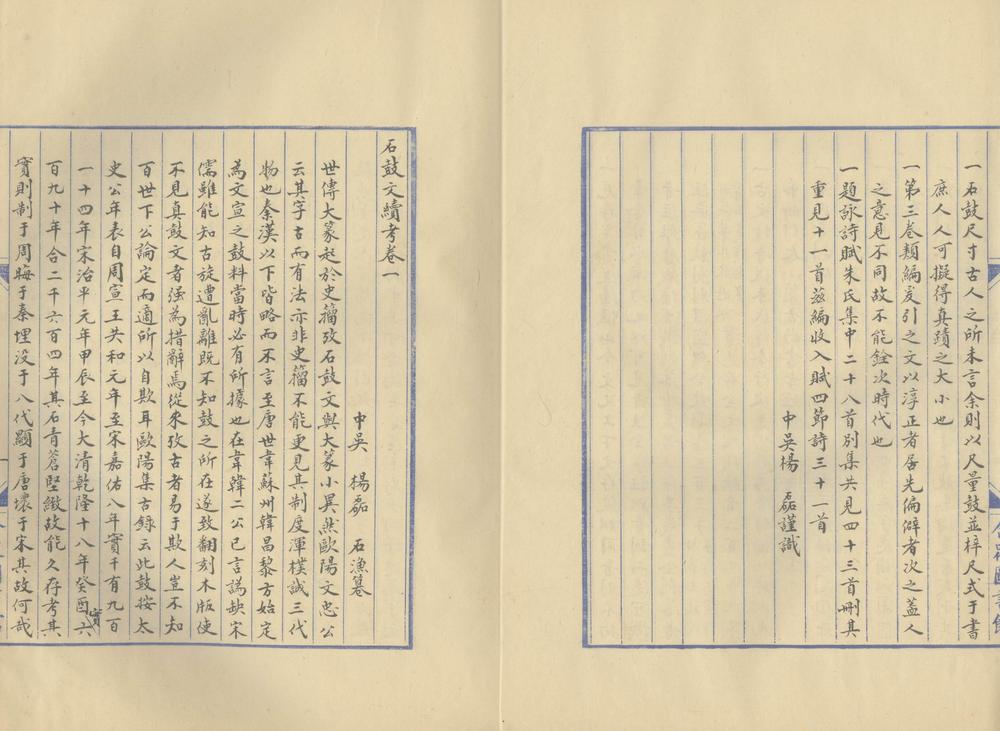 一石鼓尺寸古人之所未言余則以尺量鼓並梓尺式于書
庶人人可擬得真蹟之大小也
一第三卷類編爰引之文以淳正者居先偏僻者次之蓋人
之意見不同故不能銓次時代也
一題詠詩賦朱氏集中二十八首別集共見四十三首刪其
重見十一首茲編收入賦四節詩三十一首
中吳楊　磊謹識
石鼓文續考卷一
中吳　楊磊　石漁纂
世傳大篆起於史籀攷石鼓文與大篆小異然歐陽文忠公
云其字古而有法亦非史籀不能更見其制度渾樸誠三代
物也秦漢以下皆略而不言至唐世韋蘇州韓昌黎方始定
為文宣之鼓料當時必有所據也在韋韓二公已言譌缺宋
儒雖能知古旋遭亂離既不知鼓之所在遂致翻刻木版使
不見真鼓文者强為措辭焉從來攷古者易于欺人豈不知
百世下公論定而適所以自欺耳歐陽集古錄云此鼓按太
史公年表自周宣王共和元年至宋嘉佑八年實千有九百
一十四年宋治平元年甲辰至今大清乾隆十八年癸酉實六
百九十年合二千六百四年其石青蒼堅緻故能久存考其
實則制于周晦于秦埋没于八代顯于唐壞于宋其故何哉